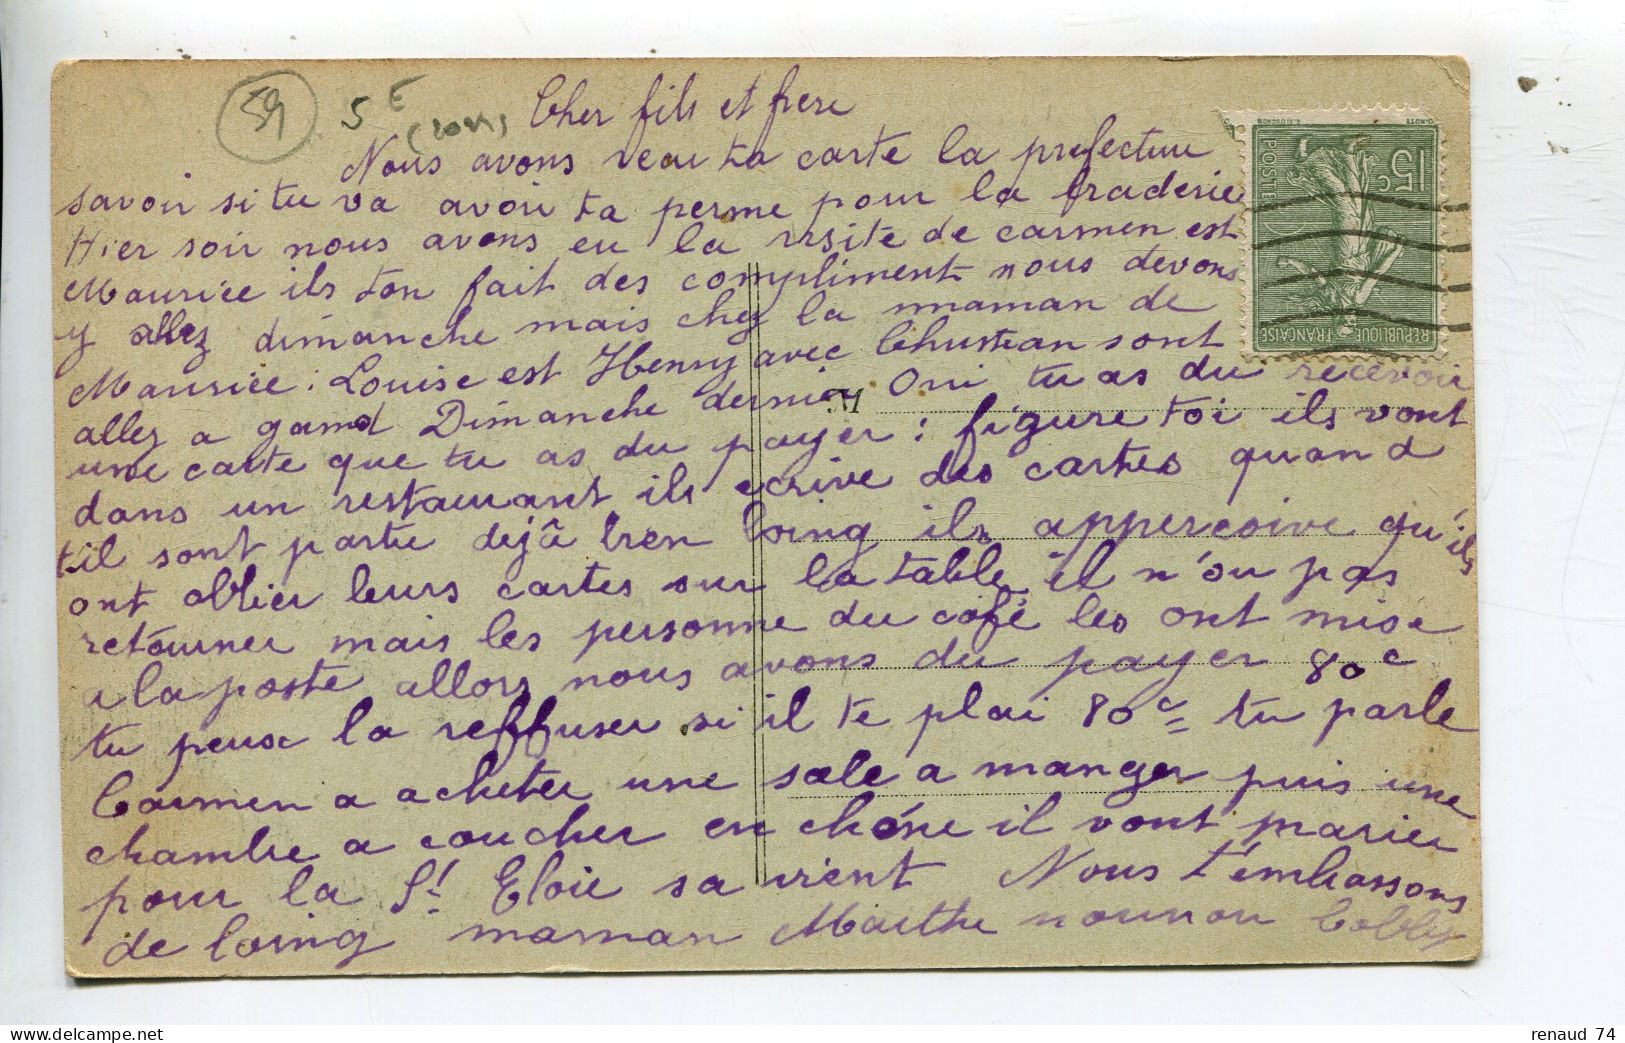 59
5E
Cher fils et frere
Nous avons recu ta carte la prefecture
savoir si tu va avoir ta perme pour la braderie
Hier soir nous avons eu la visite de carmen est
Maurice ils ton fait des compliment nous devons
y allez dimanche mais chez la maman de
Maurice : Louise est Henry avec Christian sont
allez a gand Dimanche dernier Oui tu as du recevoir
M
une carte que tu as du payer : figure toi ils vont
dans un restaurant ils ecrive des cartes quand
t'il sont partie dejâ bien loing ils apperçoive qu'ils
ont oblier leurs cartes sur la table il n'ou pas
retourner mais les personne du café les ont mise
a la poste allors nous avons du payer 80c
tu peux la reffuser si il te plai 80c tu parle
Carmen a acheter une sale a manger puis une
chambre a coucher en chéne il vont marier
pour la St Eloie sa vient Nous t'embrassons
de loing maman Marthe nounou Cobby
POSTES
15c
REPUBLIQUE FRANÇAISE
O. ROTY
renaud 74